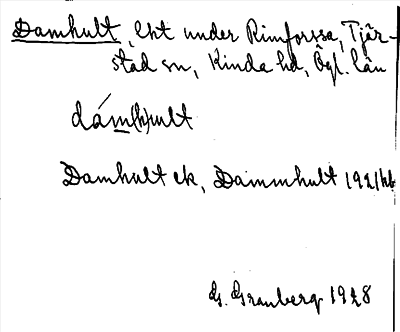 Damhult, lht under Rimforssa, Tjär-
stad sn, Kinda hd, Ögl. län
dám(h)ult
Damhult ek, Dammhult
G. Granberg 1928